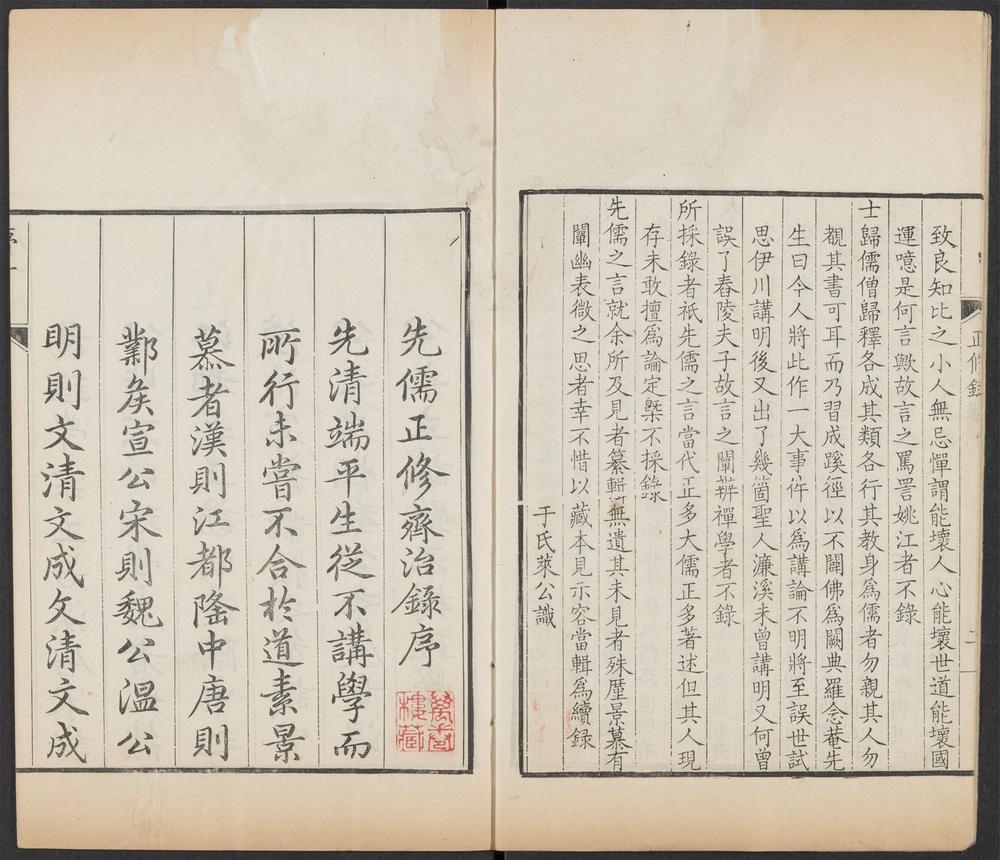 正修錄
二
致良知比之小人無忌憚謂能壞人心能壞世道能壞國
運噫是何言歟故言之罵詈姚江者不錄
士歸儒僧歸釋各成其類各行其教身為儒者勿親其人勿
覩其書可耳而乃習成蹊徑以不闢佛為闕典羅念菴先
生曰今人將此作一大事件以為講論不明將至誤世試
思伊川講明後又出了幾箇聖人濂溪未曾講明又何曾
誤了舂陵夫子故言之闡辨禪學者不錄
所採錄者祇先儒之言當代正多大儒正多著述但其人現
存未敢擅為論定槩不採錄
先儒之言就余所及見者纂輯無遺其未見者殊厪景慕有
闡幽表微之思者幸不惜以藏本見示容當輯為續錄
于氏萊公識
先儒正修齊治錄序
先清端平生從不講學而
所行未嘗不合於道素景
慕者漢則江都隆中唐則
鄴侯宣公宋則魏公溫公
明則文清文成文清文成
萬卷
樓藏